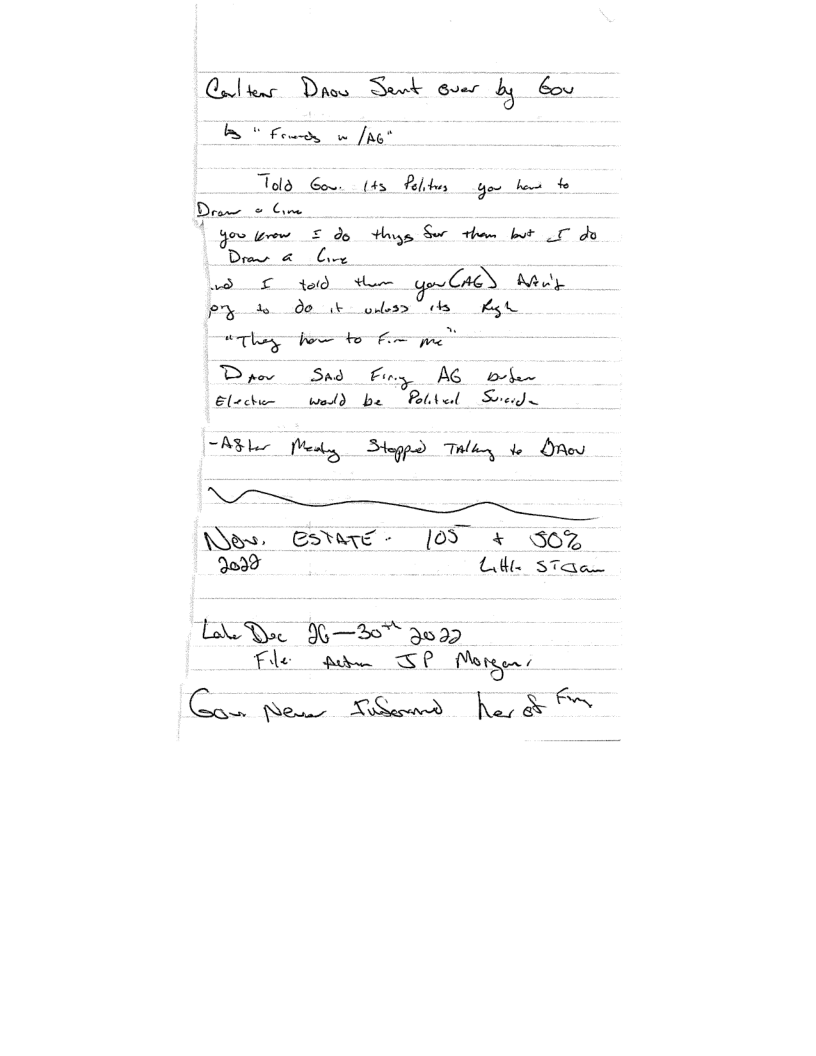 Carlton Daou Sent over by Gov
↳ "Friends w/AG"
Told Gov. Its Politics you have to
Draw a Line
you know I do things for them but I do
Draw a Line
and I told them you (AG) AAin't
to do it unless its Right
"They have to Fire me"
Daou SAid Firing AG before
Election would be Political Suicide
- After Meeting Stopped Talking to DAou
Nov. ESTATE - 105 + 50%
2022 Little ST Jam
Late Dec 26-30th 2022
File Action JP Morgan.
Gov Never Informed her of Firing